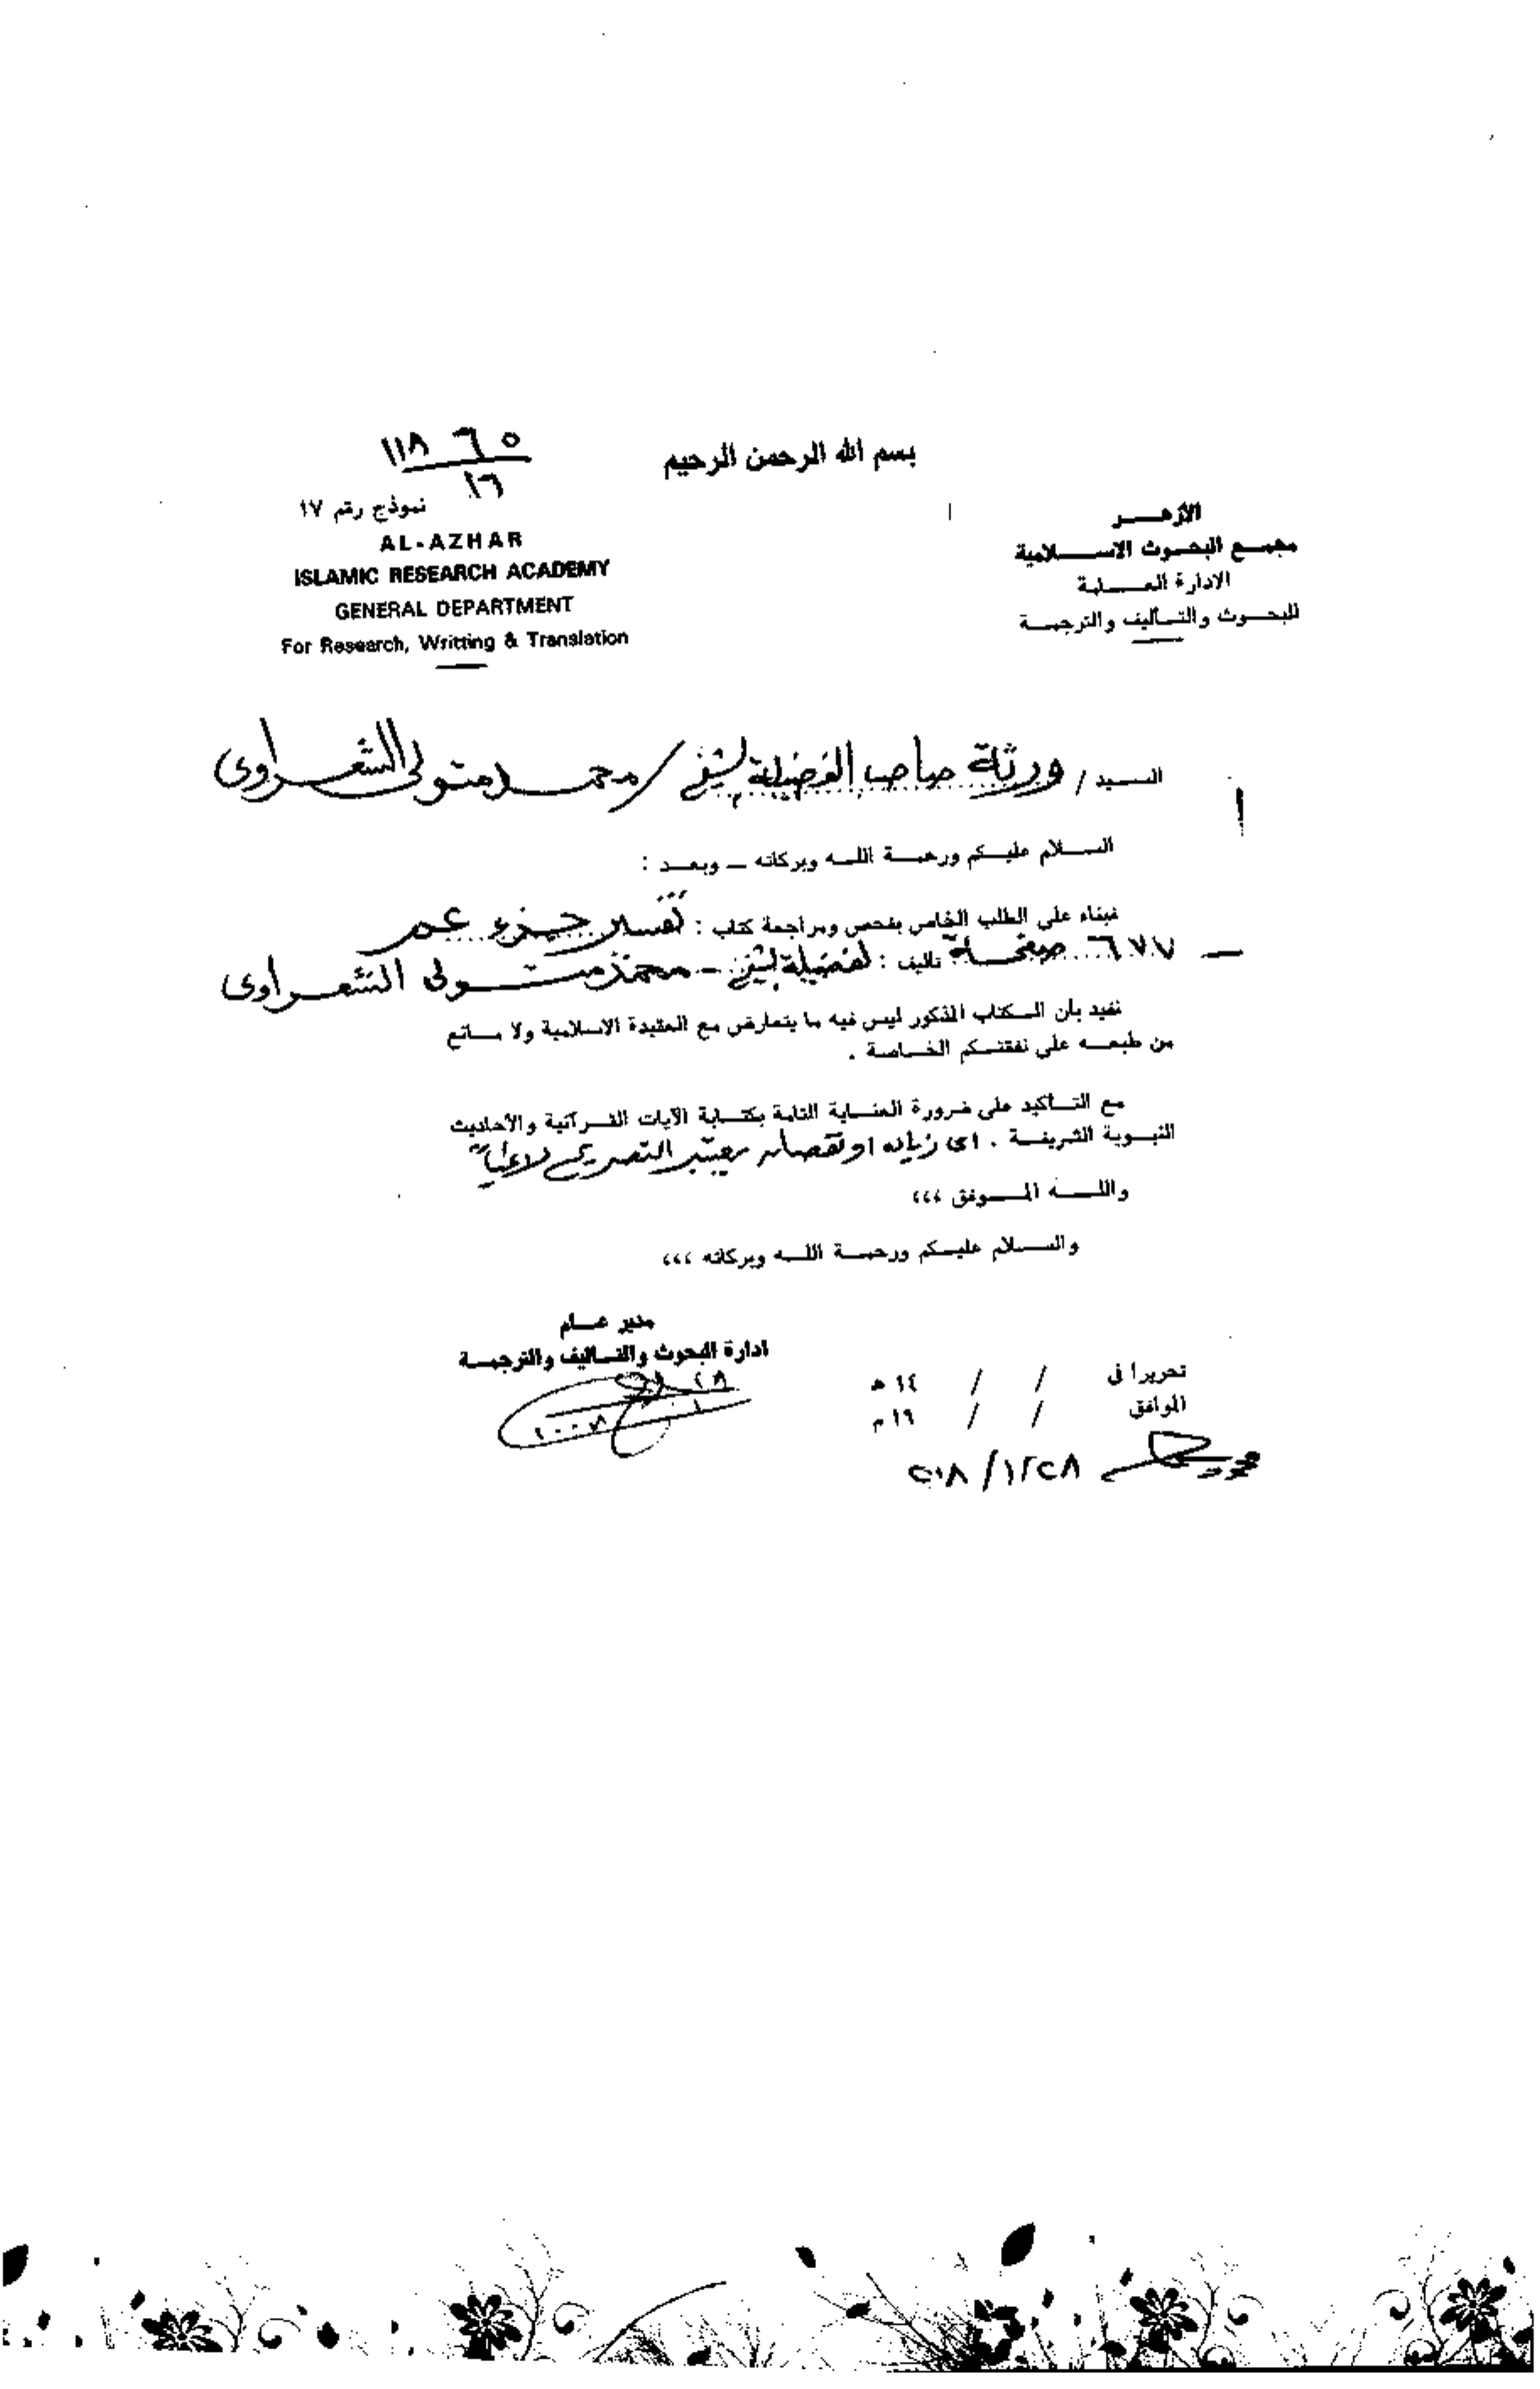 بسم الله الرحمن الرحيم
١١٨ ٦٥
١٦
نموذج رقم ١٧
الأزهـــر
مجمـع البحـوث الاســـلامية
الادارة العـــامة
للبحـــوث والتـأليف والترجمـــة
AL-AZHAR
ISLAMIC RESEARCH ACADEMY
GENERAL DEPARTMENT
For Research, Writting & Translation
الســيد / ورثة صاحب الفضيلة الشيخ / محمد متولى الشعراوى
الســـلام عليـكم ورحمـــة اللـــه وبركاته ــ وبعـــد :
فبناء على الطلب الخاص بفحص ومراجعة كتاب : تفسير جزء عم
ــ ٦٧٧ صفحة تأليف : لفضيلة الشيخ ــ محمد متولى الشعراوى
نفيد بأن الـكتاب المذكور ليس فيه ما يتعارض مع العقيدة الاسلامية ولا مــانع
من طبعـــه على نفقتـكم الخــاصة .
مع التــأكيد على ضرورة العنــاية التامة بكتــابة الآيات القــرآنية والأحاديث
النبـــوية الشريفـــة . اى زياده او نقصان يعتبر التصريح لاغياً
واللـــه المـــوفق ،،،
والســـلام عليـكم ورحمـــة اللـــه وبركاته ،،،
مدير عـــام
ادارة البحوث والتــأليف والترجمـــة
تحريرا فى / / ١٤ هـ
الموافق / / ١٩ م